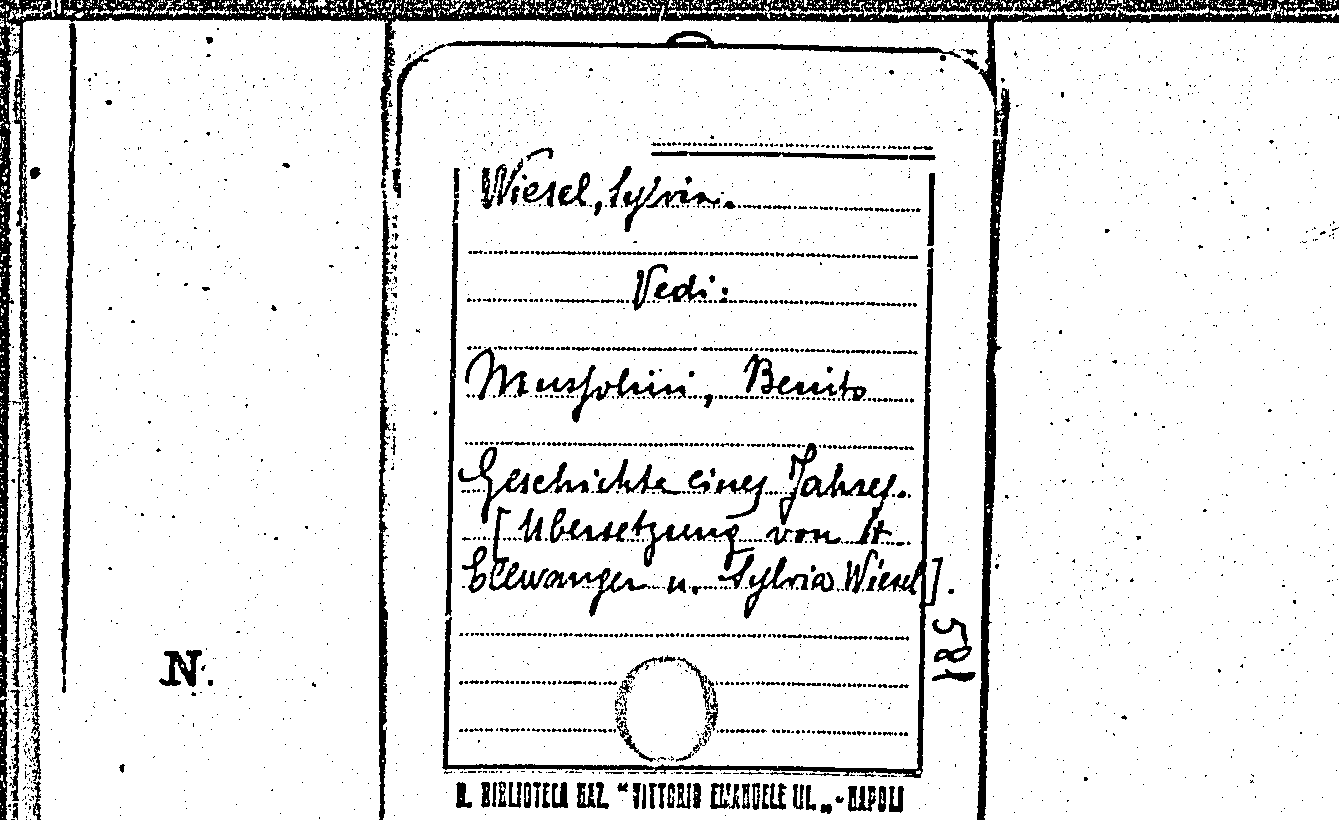 Wiesel, Sylvia.
Vedi:
Mussolini, Benito
Geschichte eines Jahres.
[Übersetzung von H.
Ellwanger u. Sylvia Wiesel].
581
N.
R. BIBLIOTECA NAZ. "VITTORIO EMANUELE III„ - NAPOLI